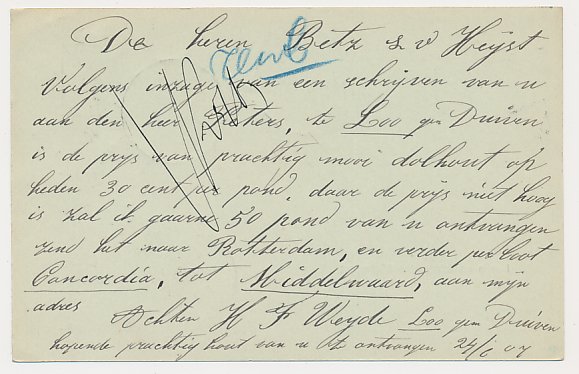 De heren Betz & v Heijst
Volgens inzage van een schrijven van u
aan den heer te Loo gem Duiven
is de prijs van prachtig mooi dolhout op
heden 30 cent per pond, daar de prijs niet hoog
is zal ik gaarne 50 pond van u ontvangen
zend het naar Rotterdam, en verder per boot
Concordia, tot Middelwaard, aan mijn
adres
Achten H F Weyde Loo gem Duiven
hopende prachtig hout van u te ontvangen 24/6 07